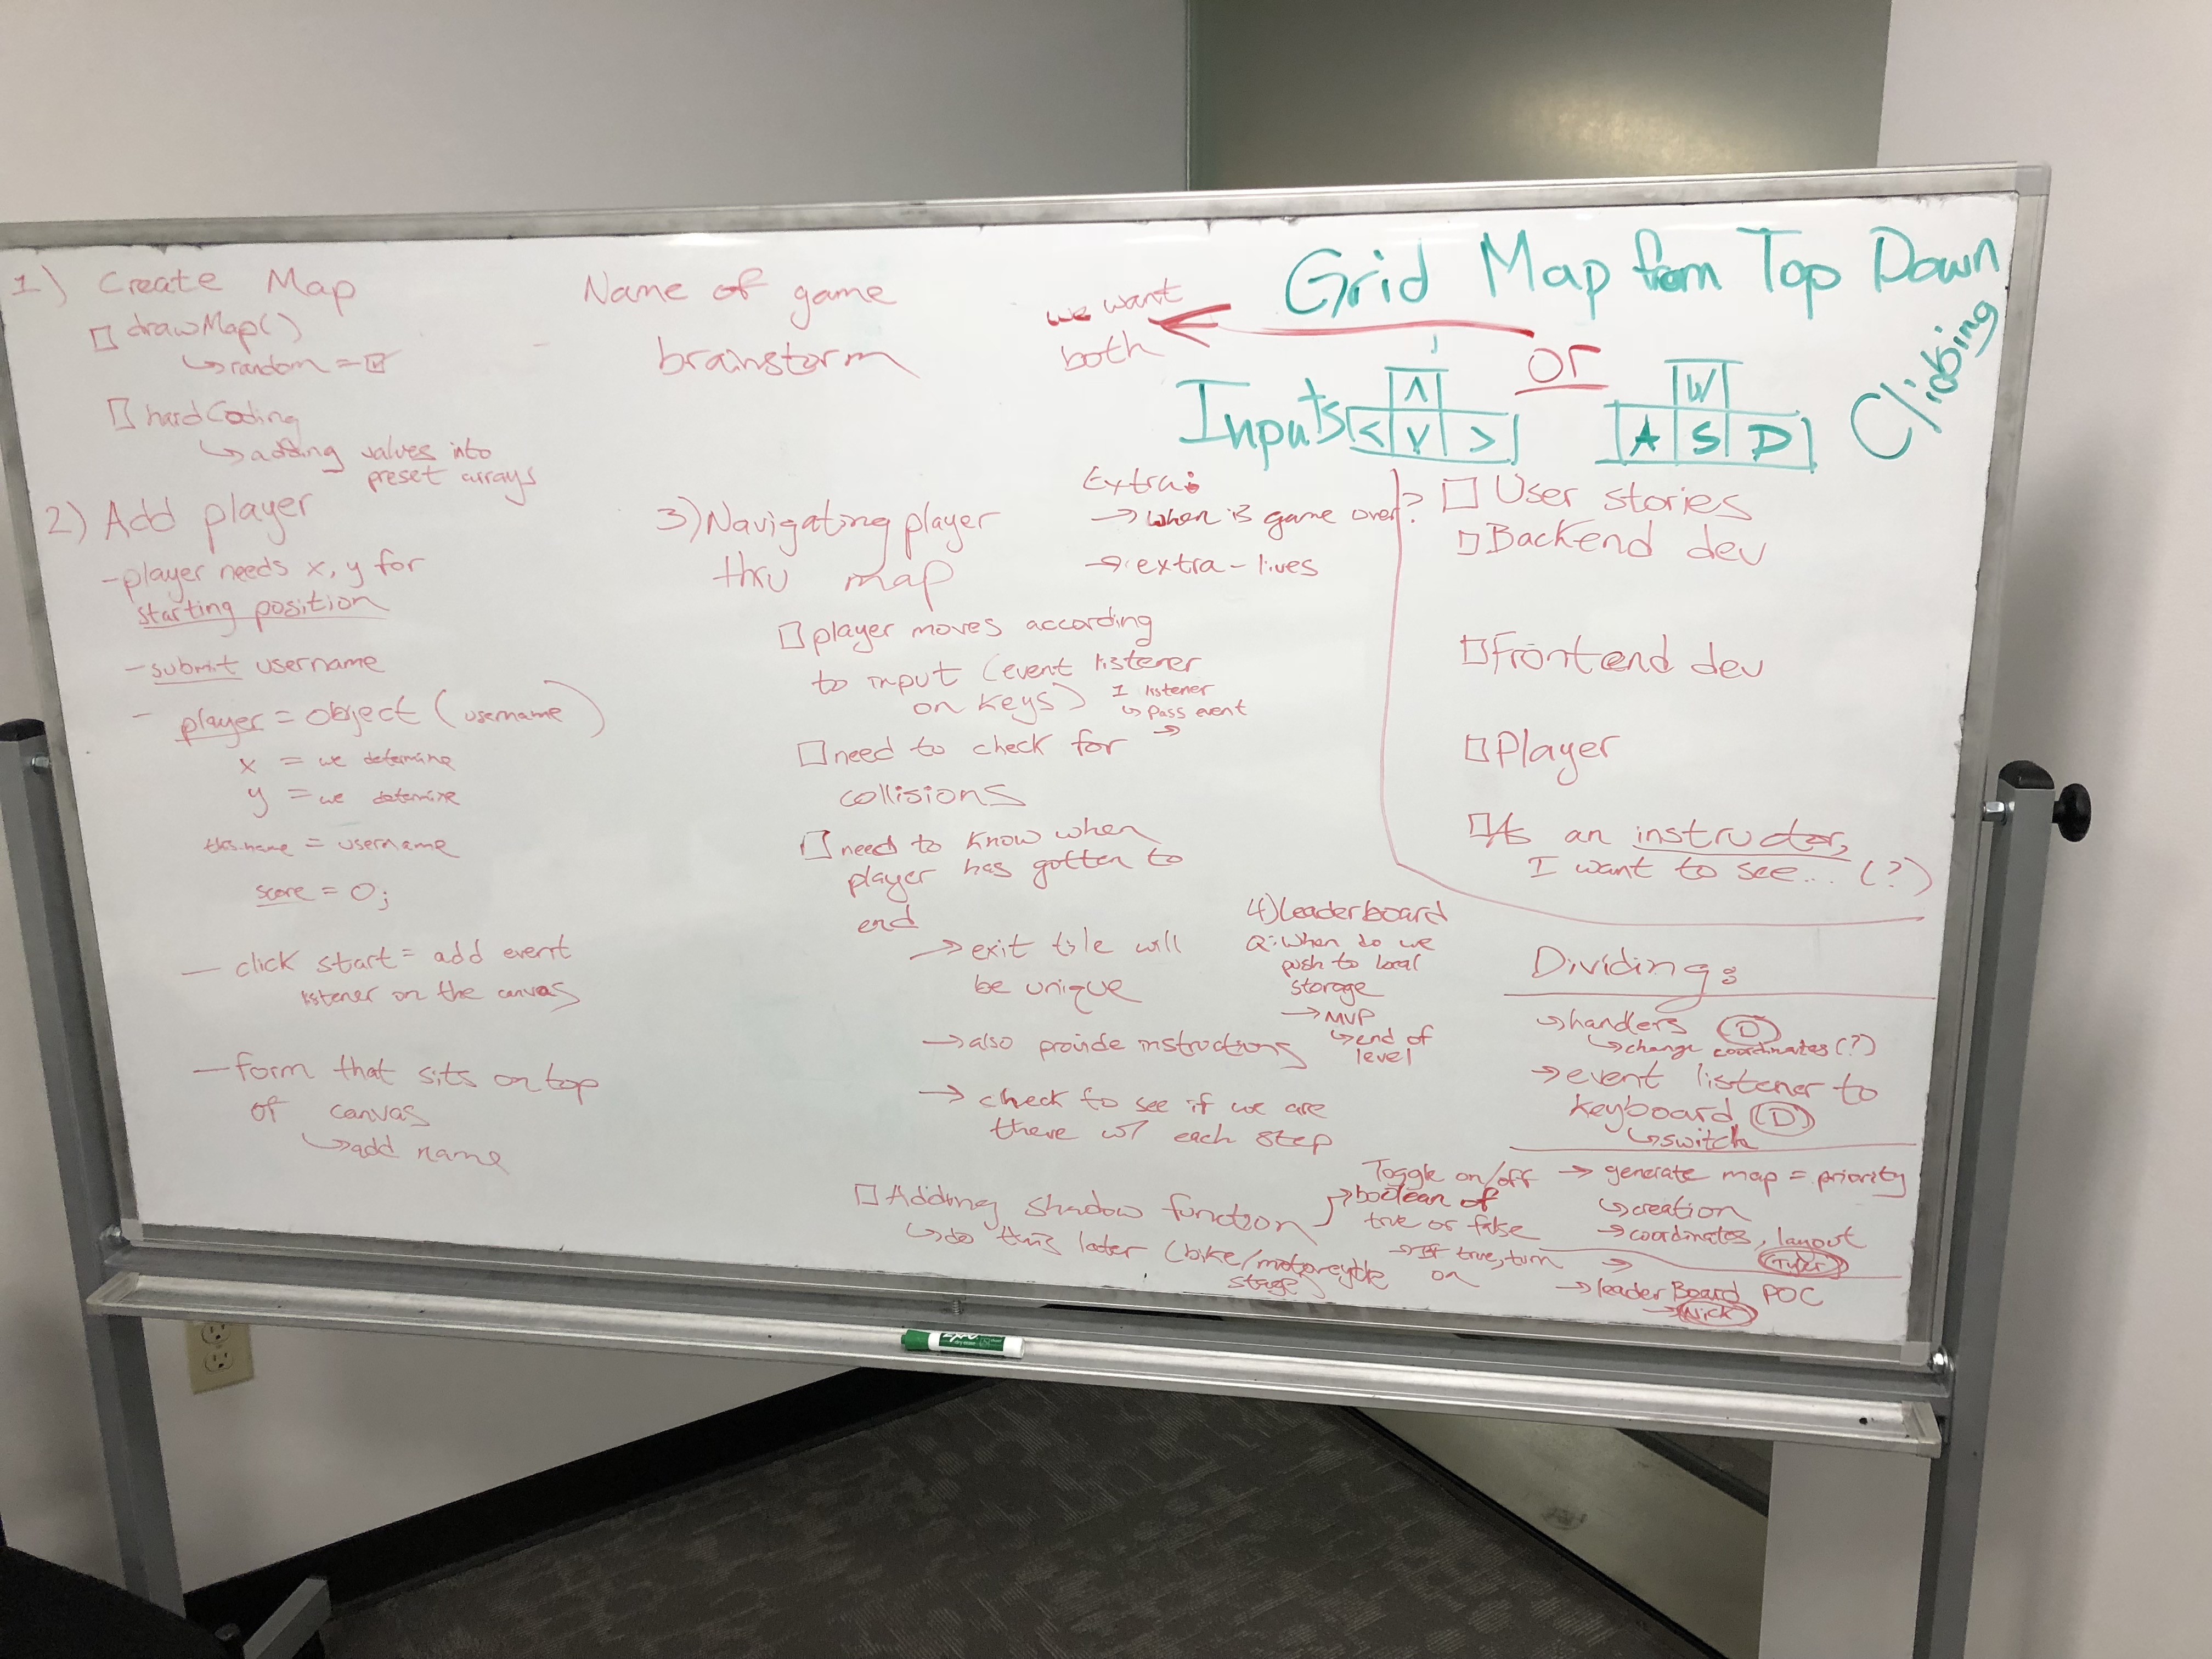 1) Create Map
drawMap()
random =
hardCoding
adding values into
preset arrays
2) Add player
- player needs x, y for
starting position
- submit username
- player = object (username)
x = we determine
y = we determine
this.name = username
score = 0;
- click start = add event
listener on the canvas
- form that sits on top
of canvas
add name
Name of game
brainstorm
we want
both
Grid Map from Top Down
or
Inputs < ^ v >
W
A S D
Extra:
→ when is game over?
→ extra-lives
3) Navigating player
thru map
player moves according
to input (event listener
on keys)
1 listener
pass event
need to check for
collisions
need to know when
player has gotten to
end
→ exit tile will
be unique
→ also provide instructions
→ check to see if we are
there w/ each step
Adding shadow function
do this later (bike/motorcycle
stage)
Toggle on/off
boolean of
true or false
→ If true, turn
on
4) Leaderboard
Q: When do we
push to local
storage
→ MVP
end of
level
? User stories
Backend dev
Frontend dev
Player
As an instructor,
I want to see... (?)
Dividing:
handlers D
change coordinates (?)
→ event listener to
keyboard D
switch
→ generate map = priority
creation
→ coordinates, layout
Tyler
→ leader Board POC
→ Nick
EXPO